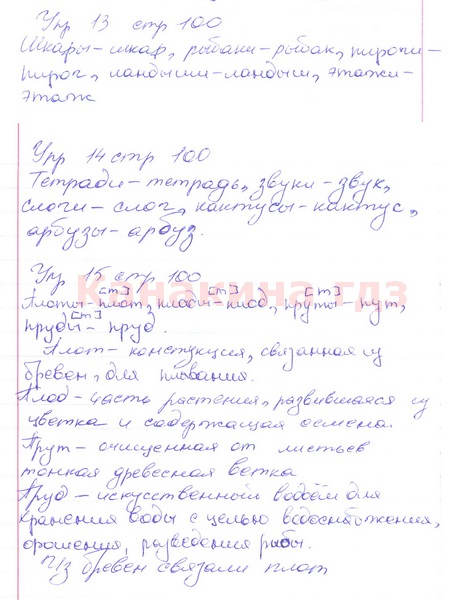 Упр 13 стр 100
Шкафы-шкаф, рыбаки-рыбак, пироги-
пирог, ландыши-ландыш, этажи-
этаж
Упр 14 стр 100
Тетради-тетрадь, звуки-звук,
слоги-слог, кактусы-кактус,
арбузы-арбуз.
Упр 15 стр 100
[т] [т] [т]
Плоты-плот, плоды-плод, пруты-прут,
[т]
пруды-пруд.
Канакина гдз
Плот-конструкция, связанная из
бревен, для плавания.
Плод-часть растения, развившаяся из
цветка и содержащая семена.
Прут-очищенная от листьев
тонкая древесная ветка
Пруд-искусственный водоём для
хранения воды с целью водоснабжения,
орошения, разведения рыбы.
Из бревен связали плот